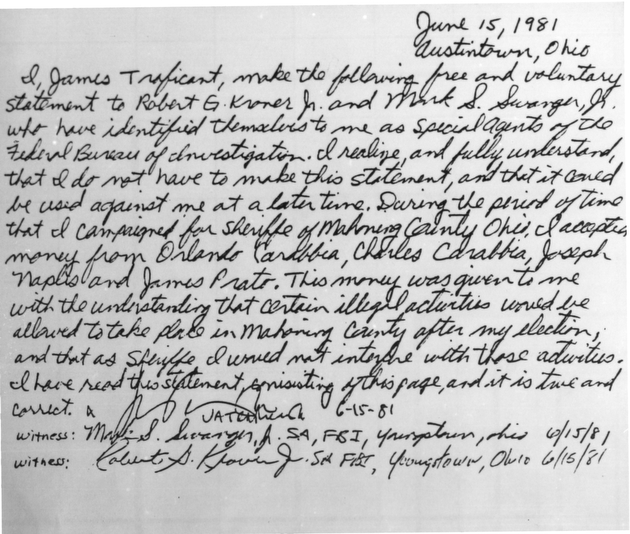 June 15, 1981
Austintown, Ohio
I, James Traficant, make the following free and voluntary
statement to Robert G. Kroner Jr. and Mark S. Swanger, Jr.
who have identified themselves to me as Special Agents of the
Federal Bureau of Investigation. I realize, and fully understand,
that I do not have to make this statement, and that it could
be used against me at a later time. During the period of time
that I campaigned for Sheriffe of Mahoning County Ohio, I accepted
money from Orlando Carabbia, Charles Carabbia, Joseph
Naples and James Prato. This money was given to me
with the understanding that certain illegal activities would be
allowed to take place in Mahoning County after my election,
and that as Sheriffe I would not interfere with those activities.
I have read this statement, consisting of this page, and it is true and
correct. 6-15-81
witness: Mark S. Swanger, Jr. SA, FBI, Youngstown, Ohio 6/15/81
witness: Robert G. Kroner Jr. SA FBI, Youngstown, Ohio 6/15/81